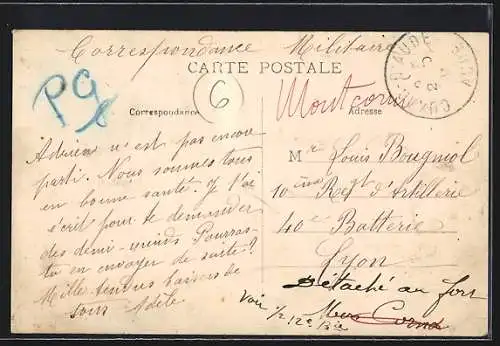 Correspondance Militaire
CARTE POSTALE
PG
6
Correspondance
Adresse
Adrien n'est pas encore
parti. Nous sommes tous
en bonne santé. Je t'ai
écrit pour te demander
des demi-muids Pourras-
tu en envoyer de suite?
Mille tendres baisers de
tous Adèle
Mr Louis Bougniol
10ème Regt d'Artillerie
40e Batterie
Lyon
Détaché au fort
Voir 1/2 12e Bie
AUDE